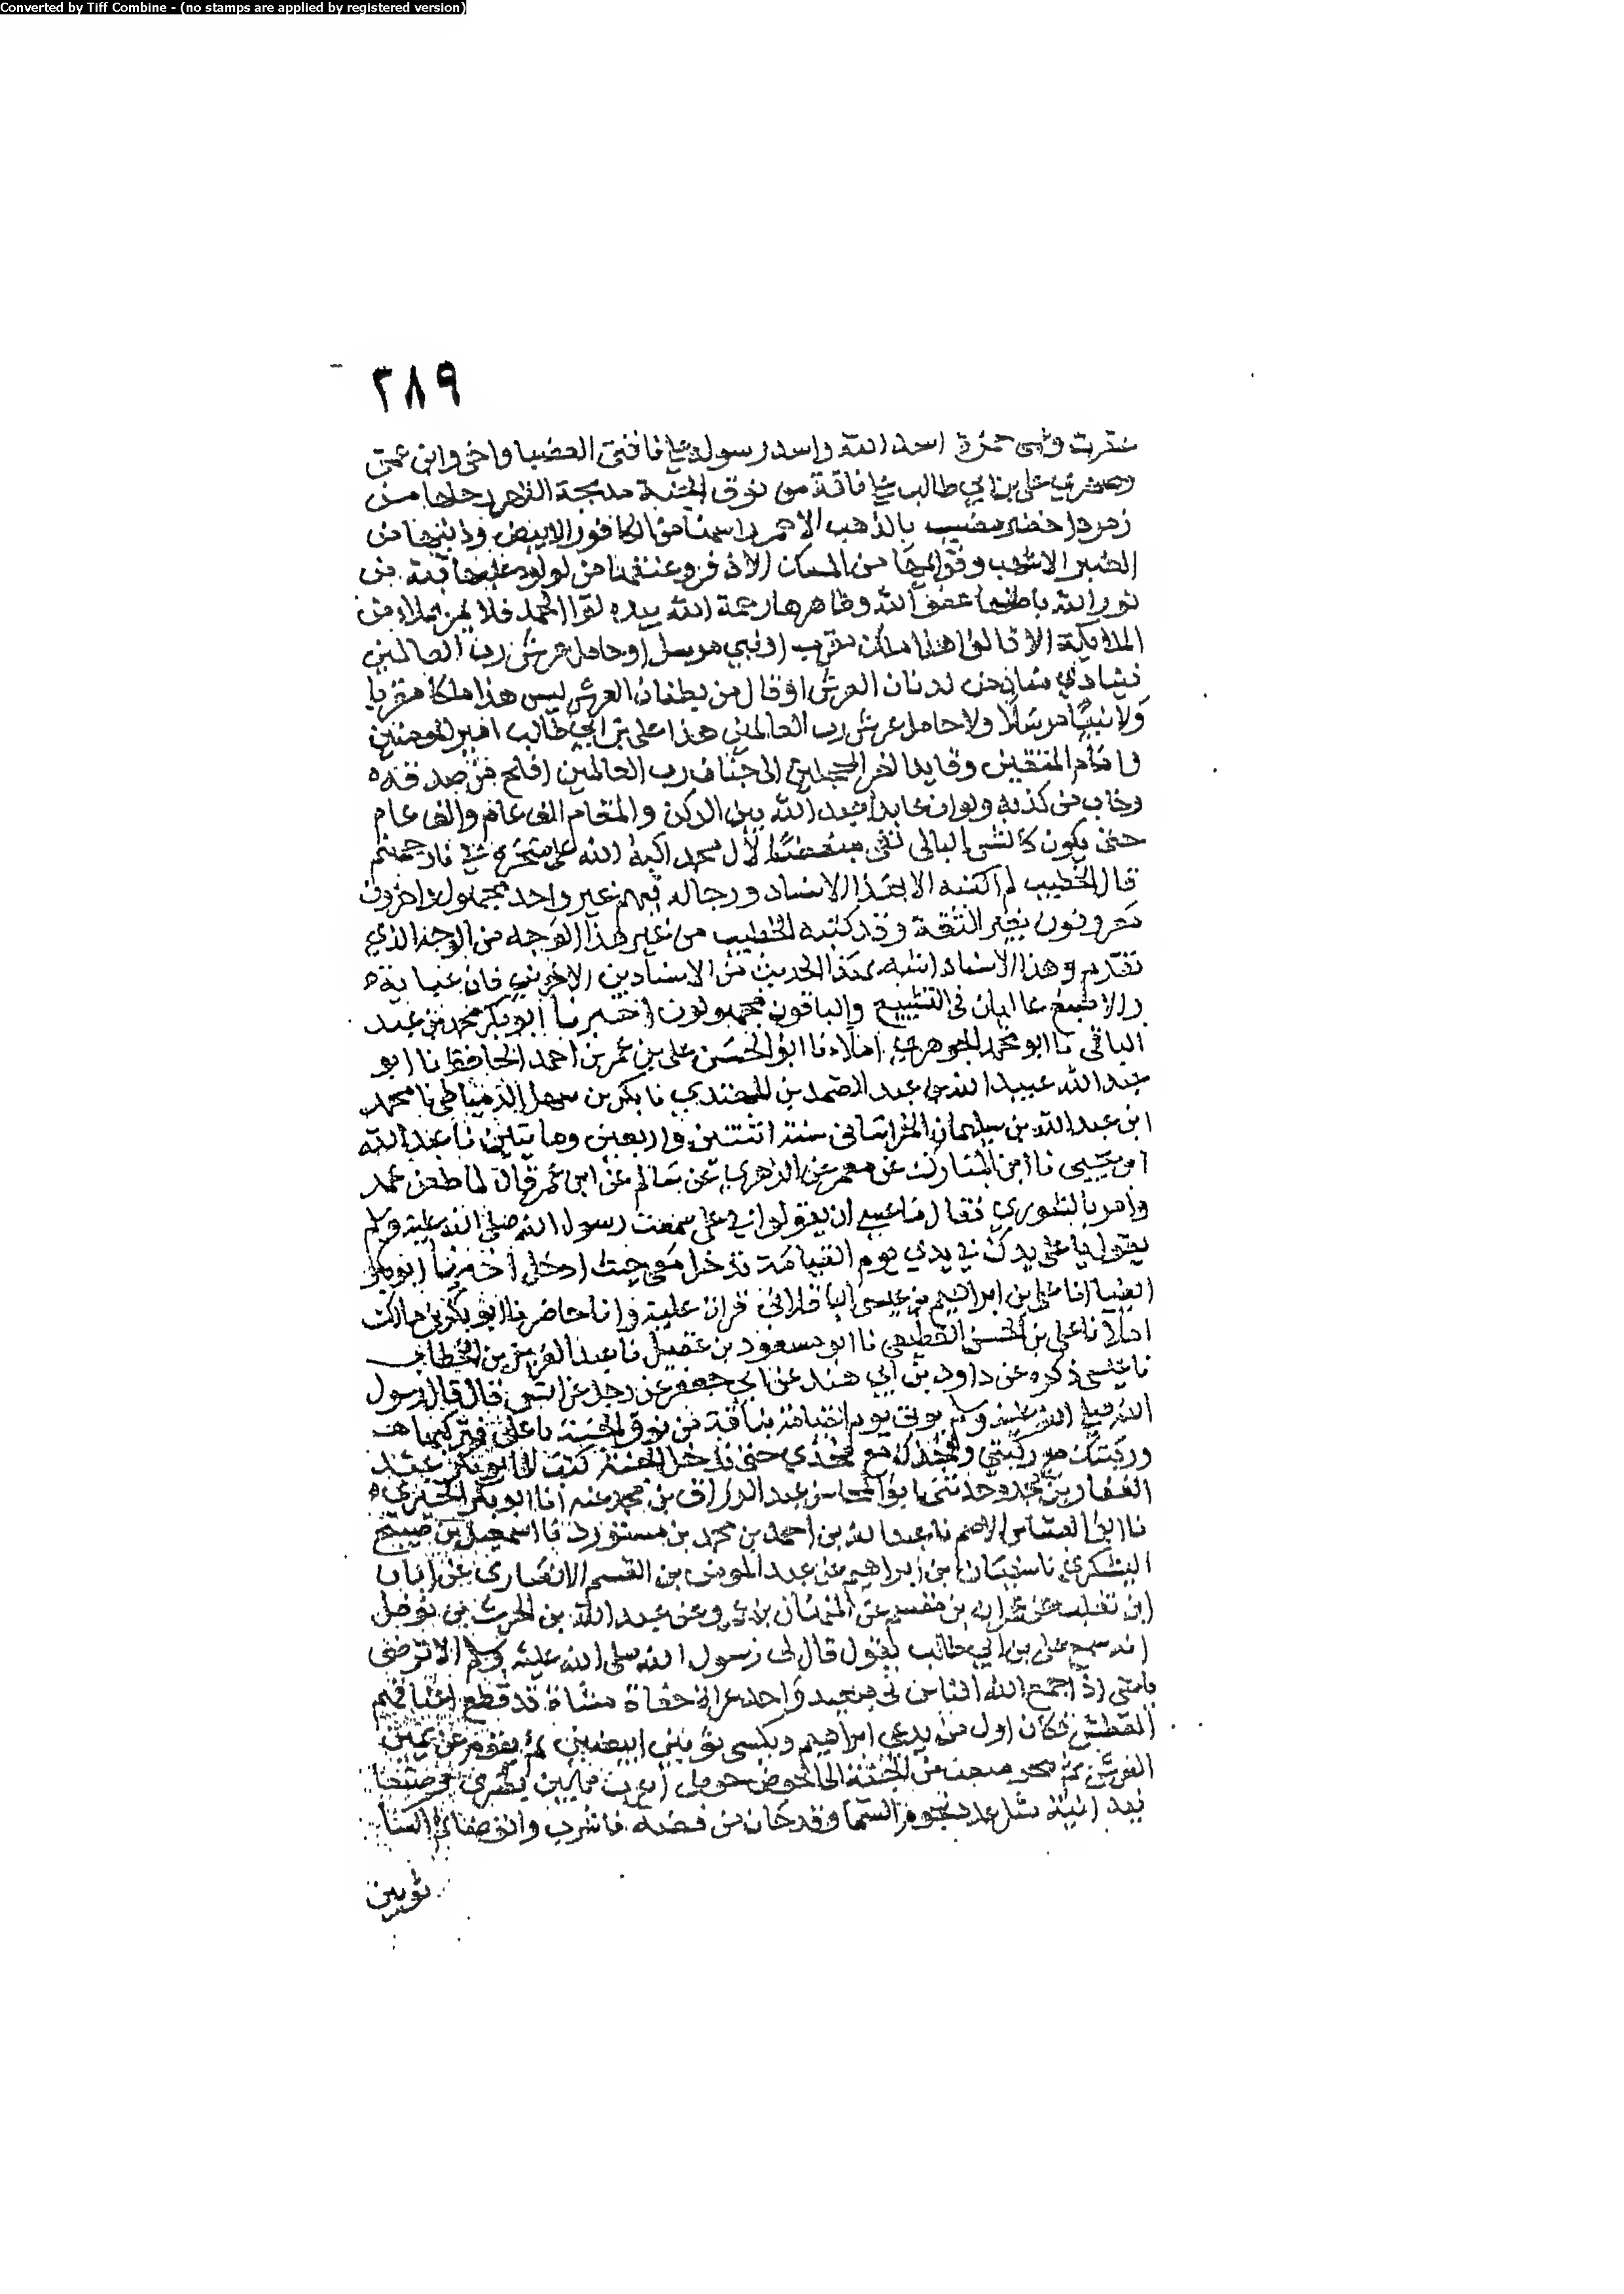 Converted by Tiff Combine - (no stamps are applied by registered version)
٣٨٩
عقرت وعمي حمزة اسد الله واسد رسوله على ناقتي العضبا واخي وابن عمي
وصهري علي بن ابي طالب على ناقة من نوق الجنة مدبجة الظهر رحلها من
زمرد اخضر مضبب بالذهب الاحمر راسها من الكافور الابيض وذنبها من
العنبر الاشهب وقوايمها من المسك الاذفر وعنقها من لولو وعليها قبة من
نور الله باطنها عفو الله وظاهرها رحمة الله بيده لوا الحمد فلا يمر بملاء من
الملايكة الا قالوا هذا ملك مقرب او نبي مرسل او حامل عرش رب العالمين
فينادي مناد من لدنان العرش او قال من بطنان العرش ليس هذا ملكا مقربا
ولا نبيا مرسلا ولا حامل عرش رب العالمين هذا علي بن ابي طالب امير المومنين
وامام المتقين وقايد الغر المحجلين الى جنان رب العالمين افلح من صدقه
وخاب من كذبه ولو ان عابدا عبد الله بين الركن والمقام الف عام والف عام
حتى يكون كالشن البالي لقي مبغضا لآل محمد اكبه الله على منخره في نار جهنم
قال الخطيب لم اكتبه الا بهذا الاسناد ورجاله فيهم غير واحد مجهول واخرون
معروفون بغير الثقة وقد كتبه الخطيب من غير هذا الوجه من الوجه الذي
تقدم وهذا الاسناد اشبه بهذا الحديث من الاسنادين الاخرين فان عباية
والاصبغ غاليان في التشيع والباقون مجهولون اخبرنا ابو بكر محمد بن عبد
الباقي نا ابو محمد الجوهري املاء نا ابو الحسن علي بن عمر بن احمد الحافظ نا ابو
عبد الله عبيد الله بن عبد الصمد بن المهتدي نا بكر بن سهل الدمياطي نا محمد
ابن عبد الله بن سليمان الخراساني سنة اثنتين واربعين ومايتين نا عبد الله
ابن يحيى نا ابن المبارك عن معمر عن الزهري عن سالم عن ابن عمر قال لما طعن عمر
وامر بالشورى فقال ما عسى ان يقولوا في علي سمعت رسول الله صلى الله عليه وسلم
يقول يا علي يدك في يدي يوم القيامة تدخل معي حيث ادخل اخبرنا ابو بكر
ايضا انا علي بن ابراهيم بن عيسى الباقلاني قراة عليه وانا حاضر نا ابو بكر بن مالك
املا نا علي بن الحسن القطيعي نا ابو مسعود بن عقيل نا عبد العزيز بن الخطاب
نا عيسى ذكره عن داود بن ابي هند عن ابي جعفر عن رجل عن انس قال قال رسول
الله صلى الله عليه وسلم يوتى يوم القيامة بناقة من نوق الجنة يا علي فتركبها
وركبتك مع ركبتي وفخذك مع فخذي حتى تدخل الجنة كتب الي ابو بكر عبد
الغفار بن محمد وحدثني ابو المحاسن عبد الرزاق بن محمد عنه انا ابو بكر الحيري
نا ابو العباس الاصم نا عبد الله بن احمد بن محمد بن مستورد نا اسمعيل بن صبيح
اليشكري نا سفيان بن ابراهيم عن عبد المومن بن القسم الانصاري عن ابان
ابن تغلب عن عمران بن مقسم عن المنهال بن عمرو عن عبد الله بن الحرث بن نوفل
انه سمع علي بن ابي طالب يقول قال لي رسول الله صلى الله عليه وسلم الا ترضى
يا علي اذا جمع الله الناس في صعيد واحد عراة حفاة مشاة قد قطع اعناقهم
العطش فكان اول من يدعى ابراهيم ويكسى ثوبين ابيضين ثم يقوم عن يمين
العرش ثم يفجر مثعب من الجنة الى الحوض حوضي اعرض مما بين بصرى وصنعا
فيه انية مثل عدد نجوم السما وقدحان من فضة فاشرب واتوضا
ثوبين